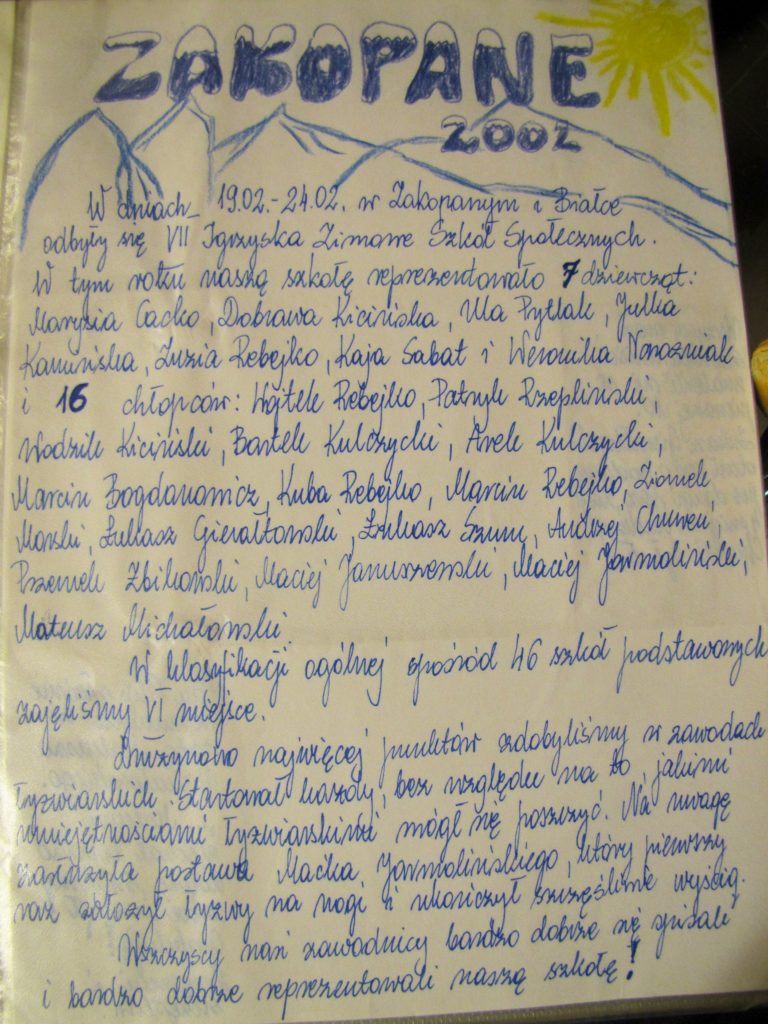 ZAKOPANE
2002
W dniach 19.02.-24.02. w Zakopanym i Białce
odbyły się VII Igrzyska Zimowe Szkół Społecznych.
W tym roku naszą szkołę reprezentowało 7 dziewcząt:
Marysia Cacko, Dobrawa Kicińska, Ula Prytlak, Julka
Kamińska, Zuzia Rebejko, Kaja Sabat i Weronika Nowozniak
i 16 chłopców: Wojtek Rebejko, Patryk Rzepliński,
Wodzik Kiciński, Bartek Kulczycki, Arek Kulczycki,
Marcin Bogdanowicz, Kuba Rebejko, Marcin Rebejko, Ziomek
Marski, Łukasz Gierałtowski, Łukasz Szum, Andrzej
Przemek Zbikowski, Maciej Januszewski, Maciej Jarmoliński,
Mateusz Michałowski.
W klasyfikacji ogólnej spośród 46 szkół podstawowych
zajęliśmy VI miejsce.
Drużynowo najwięcej punktów zdobyliśmy w zawodach
łyżwiarskich. Startował każdy, bez względu na to, jakimi
umiejętnościami łyżwiarskimi mógł się poszczyć. Na uwagę
zasłużyła postawa Maćka Jarmolińskiego, który pierwszy
raz założył łyżwy na nogi i ukończył szczęśliwie wyścig.
Wszczyscy nasi zawodnicy bardzo dobrze się spisali
i bardzo dobrze reprezentowali naszą szkołę!